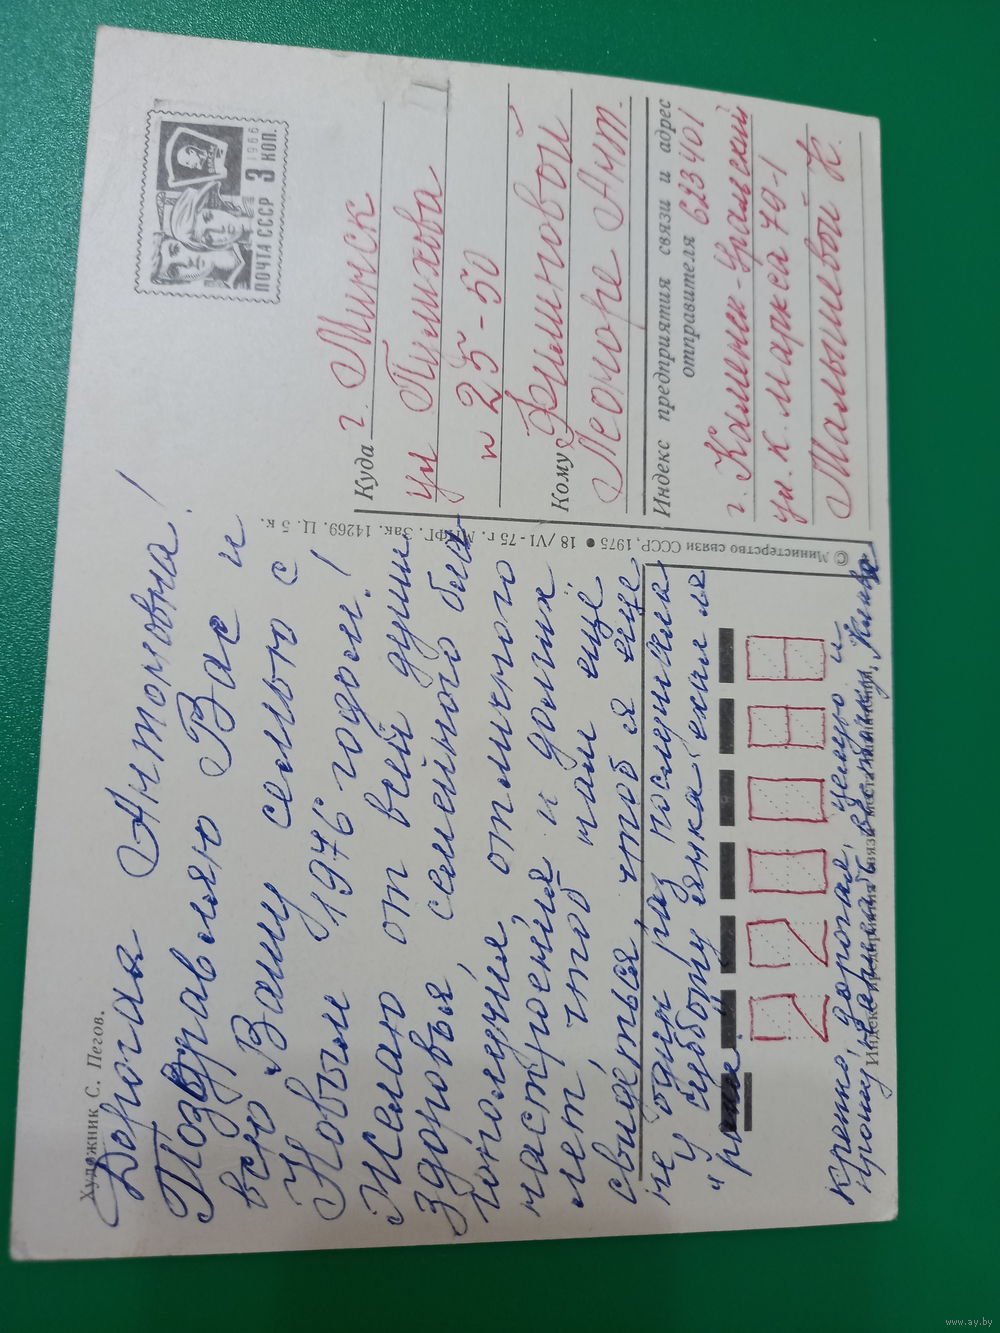 Художник С. Пегов.
Дорогая Антоновна!
Поздравляю Вас и
всю Вашу семью с
Новым 1976 годом!
Желаю от всей души
здоровья, семейного бла
гополучия, отличного
настроения и долгих
лет, чтоб нам ещё
свидеться, чтоб я еще
не один раз послушала
у субботу
"
Крепко, дорогая, целую и
Индекс предприятия связи места назначения
© Министерство связи СССР, 1975 ● 18/VI-75 г. МПФГ. Зак. 14269. Ц. 5 к.
1966
ПОЧТА СССР 3 КОП.
Куда г. Минск
ул Пулихова
25-50
Кому
Леоноре Ант.
Индекс предприятия связи и адрес
отправителя 623401
г. Каменск-Уральский
ул. К. Маркса 79-1
Малышевой К.
220088
www.ay.by